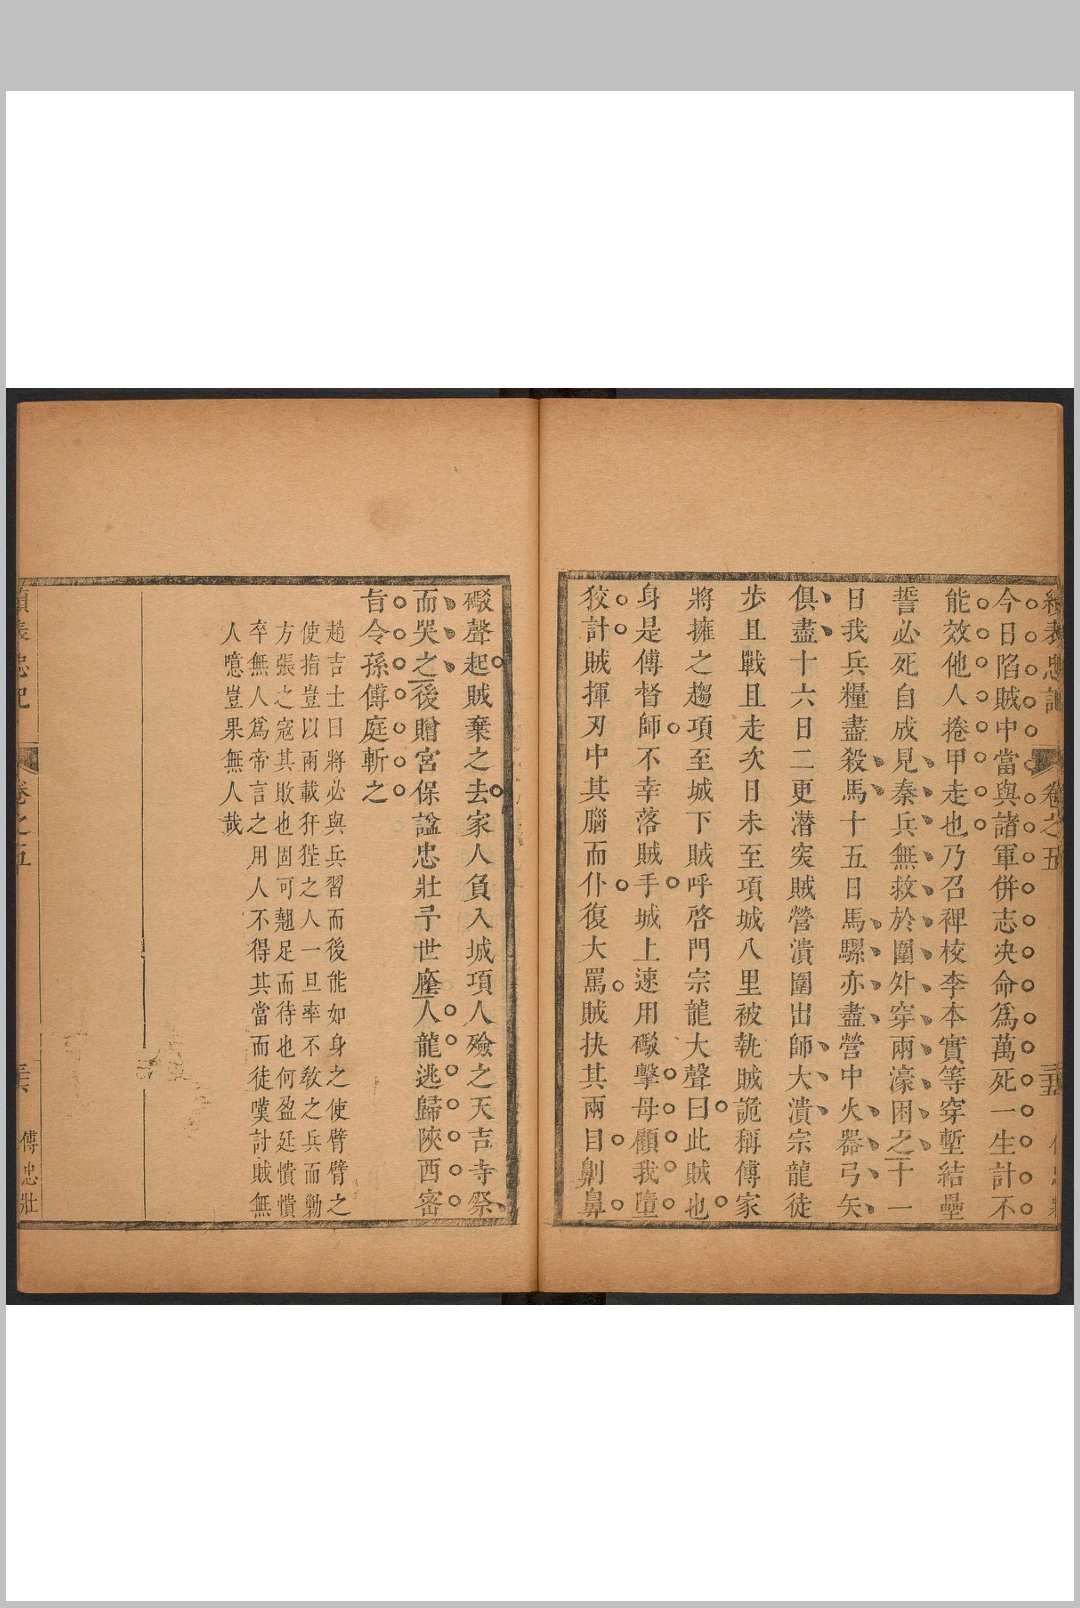 續表忠記 卷之五 三十五
今日陷賊中當與諸軍併志决命爲萬死一生計不
能效他人捲甲走也乃召裨校李本實等穿塹結壘
誓必死自成見秦兵無救於圍外穿兩濠困之十一
日我兵糧盡殺馬十五日馬騾亦盡營中火器弓矢
俱盡十六日二更潛突賊營潰圍出師大潰宗龍徒
步且戰且走次日未至項城八里被執賊詭稱傅家
將擁之趨項至城下賊呼啓門宗龍大聲曰此賊也
身是傅督師不幸落賊手城上速用礮擊毋顧我墮
狡計賊揮刃中其腦而仆復大罵賊抉其兩目劓鼻
礮聲起賊棄之去家人負入城項人殮之天吉寺祭
而哭之後贈宮保諡忠壯予世廕人龍逃歸陝西密
旨令孫傅庭斬之
趙吉士曰將必與兵習而後能如身之使臂臂之
使指豈以兩載犴狴之人一旦率不敎之兵而勦
方張之寇其敗也固可翹足而待也何盈廷憒憒
卒無人爲帝言之用人不得其當而徒嘆討賊無
人噫豈果無人哉
續表忠記 卷之五 三十六 傅忠壯